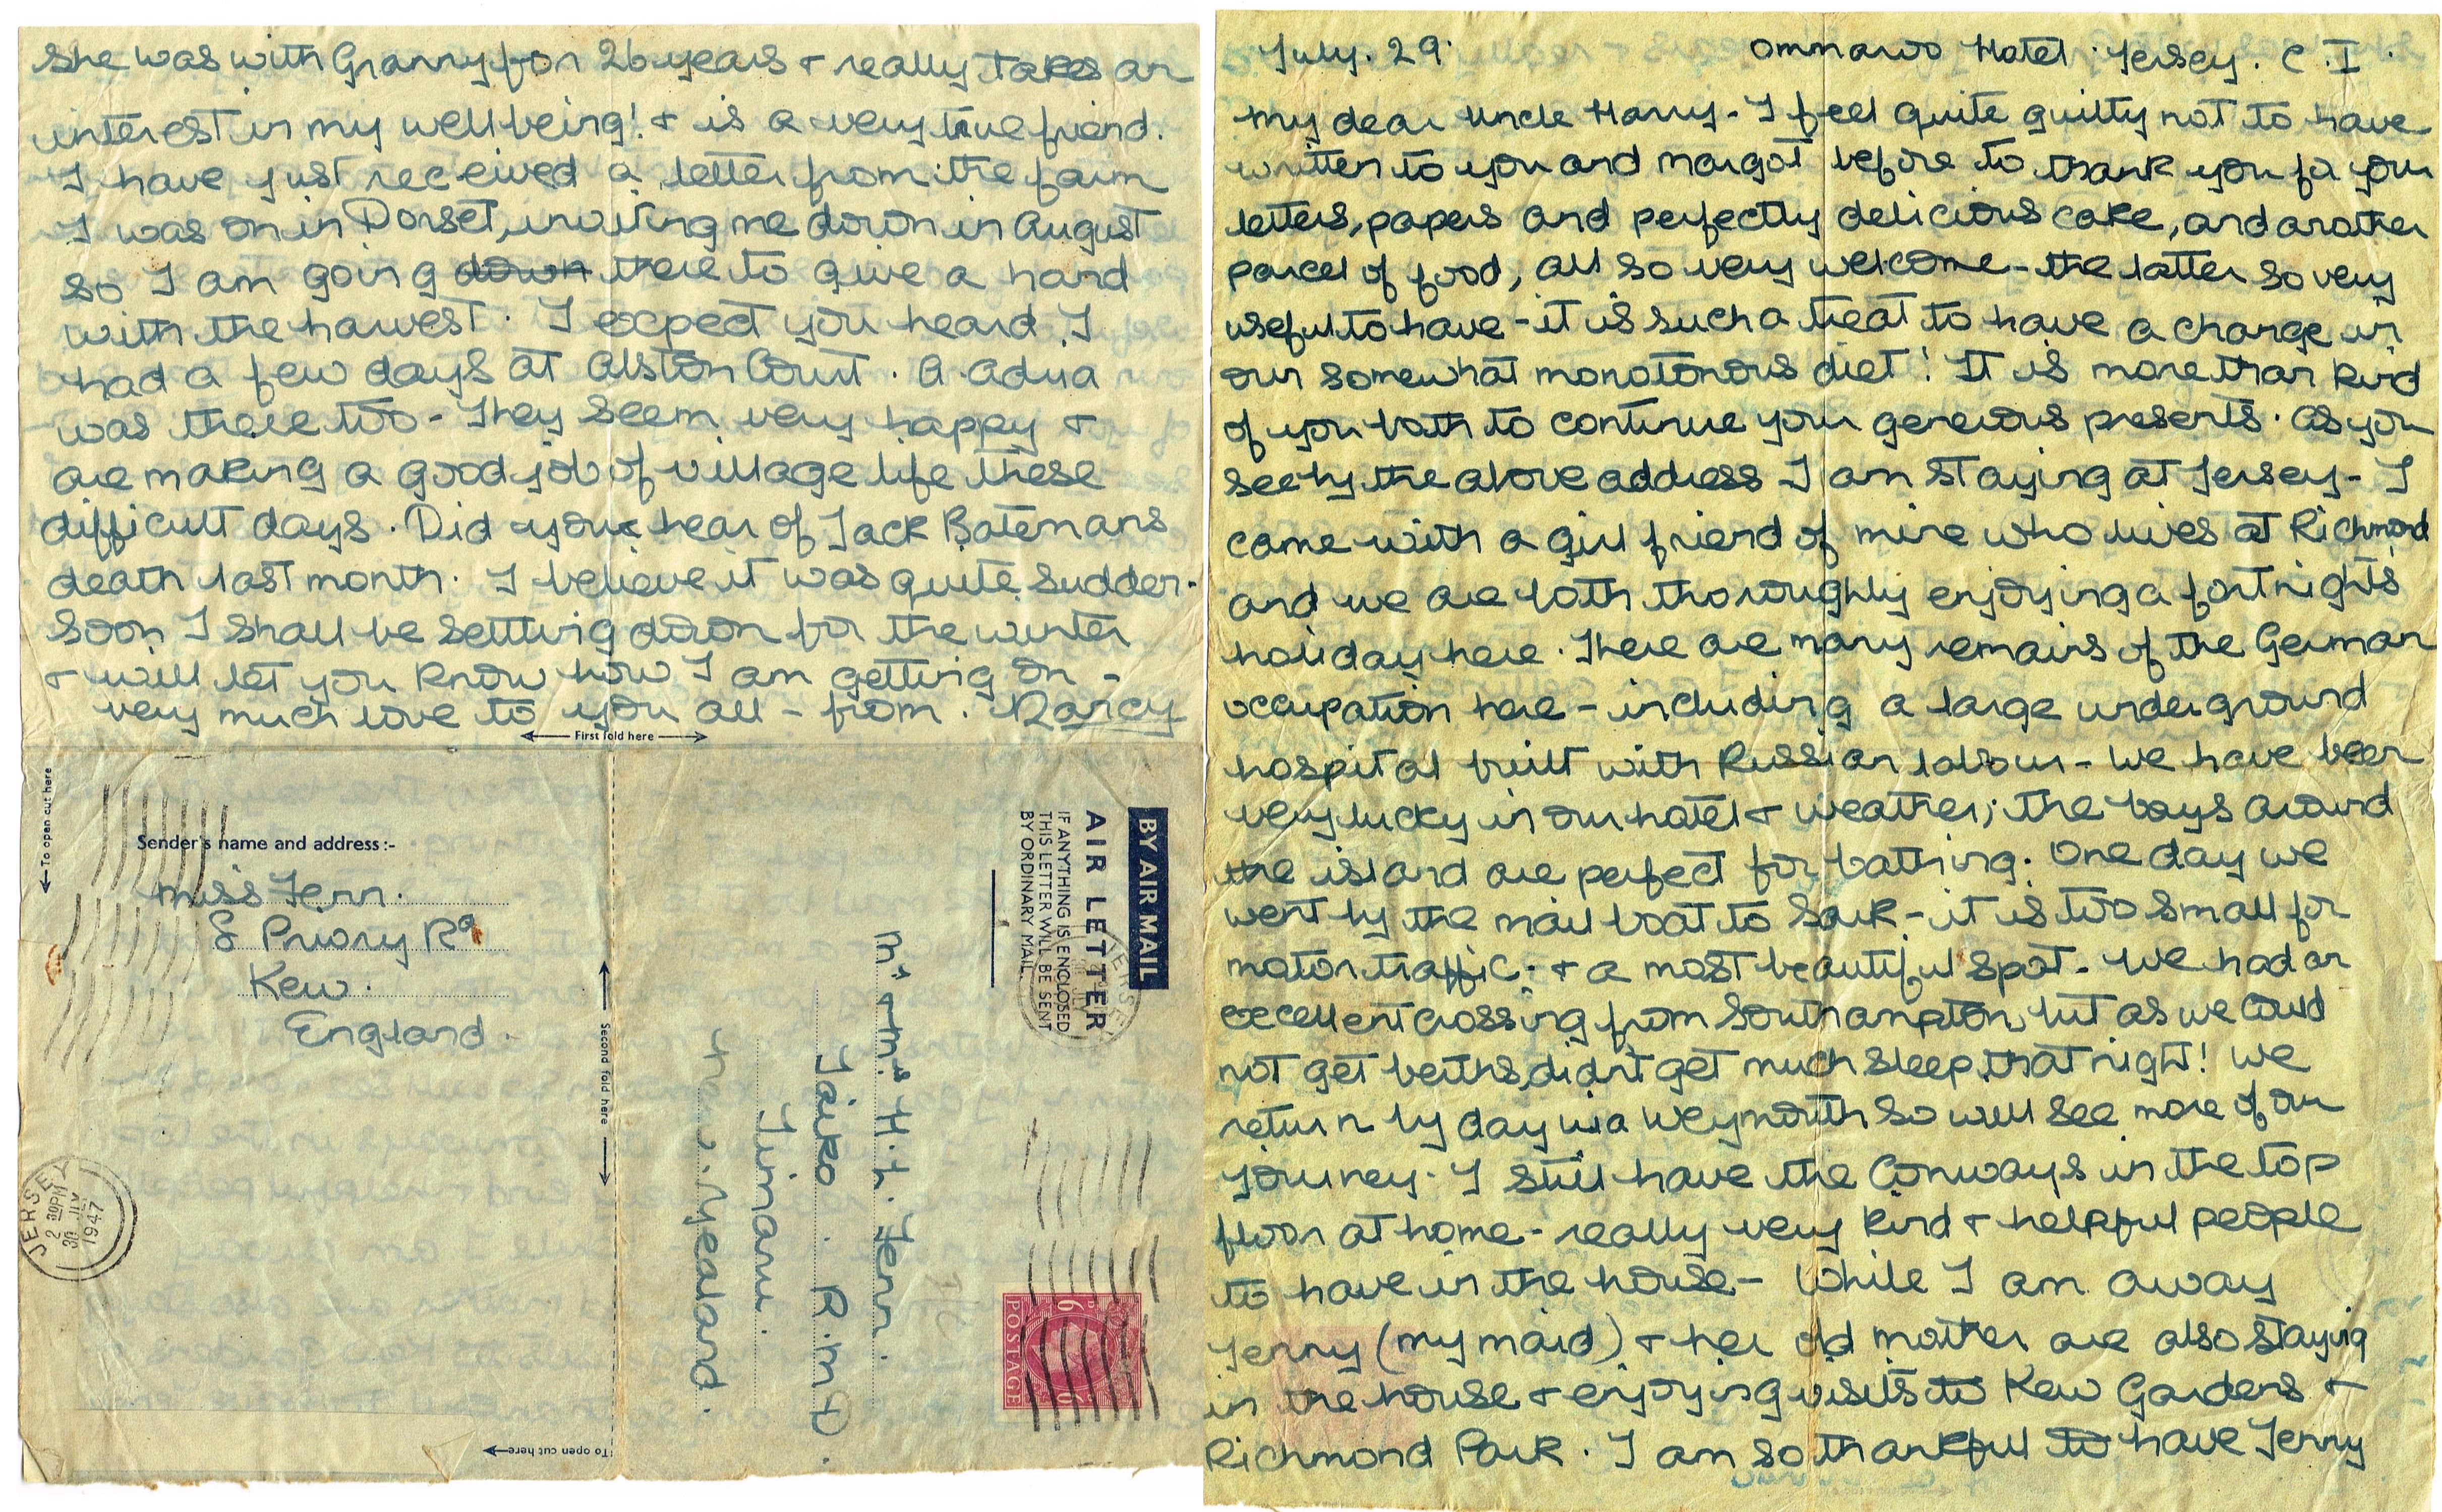 July. 29. Ommaroo Hotel. Jersey. C.I.
My dear Uncle Harry - I feel quite guilty not to have
written to you and Margot before to thank you for your
letters, papers and perfectly delicious cake, and another
parcel of food, all so very welcome - the latter so very
useful to have - it is such a treat to have a change in
our somewhat monotonous diet! It is more than kind
of you both to continue your generous presents. As you
see by the above address I am staying at Jersey - I
came with a girl friend of mine who lives at Richmond
and we are both thoroughly enjoying a fortnights
holiday here. There are many remains of the German
occupation here - including a large underground
hospital built with Russian labour - We have been
very lucky in our hotel + weather; the bays around
the island are perfect for bathing. One day we
went by the mail boat to Sark - it is too small for
motor traffic; + a most beautiful spot. We had an
excellent crossing from Southampton but as we could
not get berths, didn't get much sleep, that night! We
return by day via Weymouth so will see more of our
journey. I still have the Conways in the top
floor at home - really very kind + helpful people
to have in the house - While I am away
Jenny (my maid) + her old mother are also staying
in the house + enjoying visits to Kew Gardens +
Richmond Park. I am so thankful to have Jenny
she was with Granny for 26 years + really takes an
interest in my wellbeing! + is a very true friend.
I have just received a letter from the farm
I was on in Dorset, inviting me down in August
so I am going down there to give a hand
with the harvest. I expect you heard I
had a few days at Alston Court. A. Adria
was there too - They seem very happy +
are making a good job of village life these
difficult days. Did you hear of Jack Batemans
death last month. I believe it was quite sudden.
Soon I shall be settling down for the winter
+ will let you know how I am getting on -
very much love to you all - from. Nancy
← First fold here →
← To open cut here
Sender's name and address :-
Miss Fenn.
8 Priory Rd
Kew.
England.
JERSEY
2 30PM
30 JLY
1947
Second fold here
To open cut here
BY AIR MAIL
AIR LETTER
IF ANYTHING IS ENCLOSED
THIS LETTER WILL BE SENT
BY ORDINARY MAIL
JERSEY
Mr + Mrs H. L. Fenn.
Taiko. R.M.D.
Timaru.
New. Zealand.
6D
POSTAGE